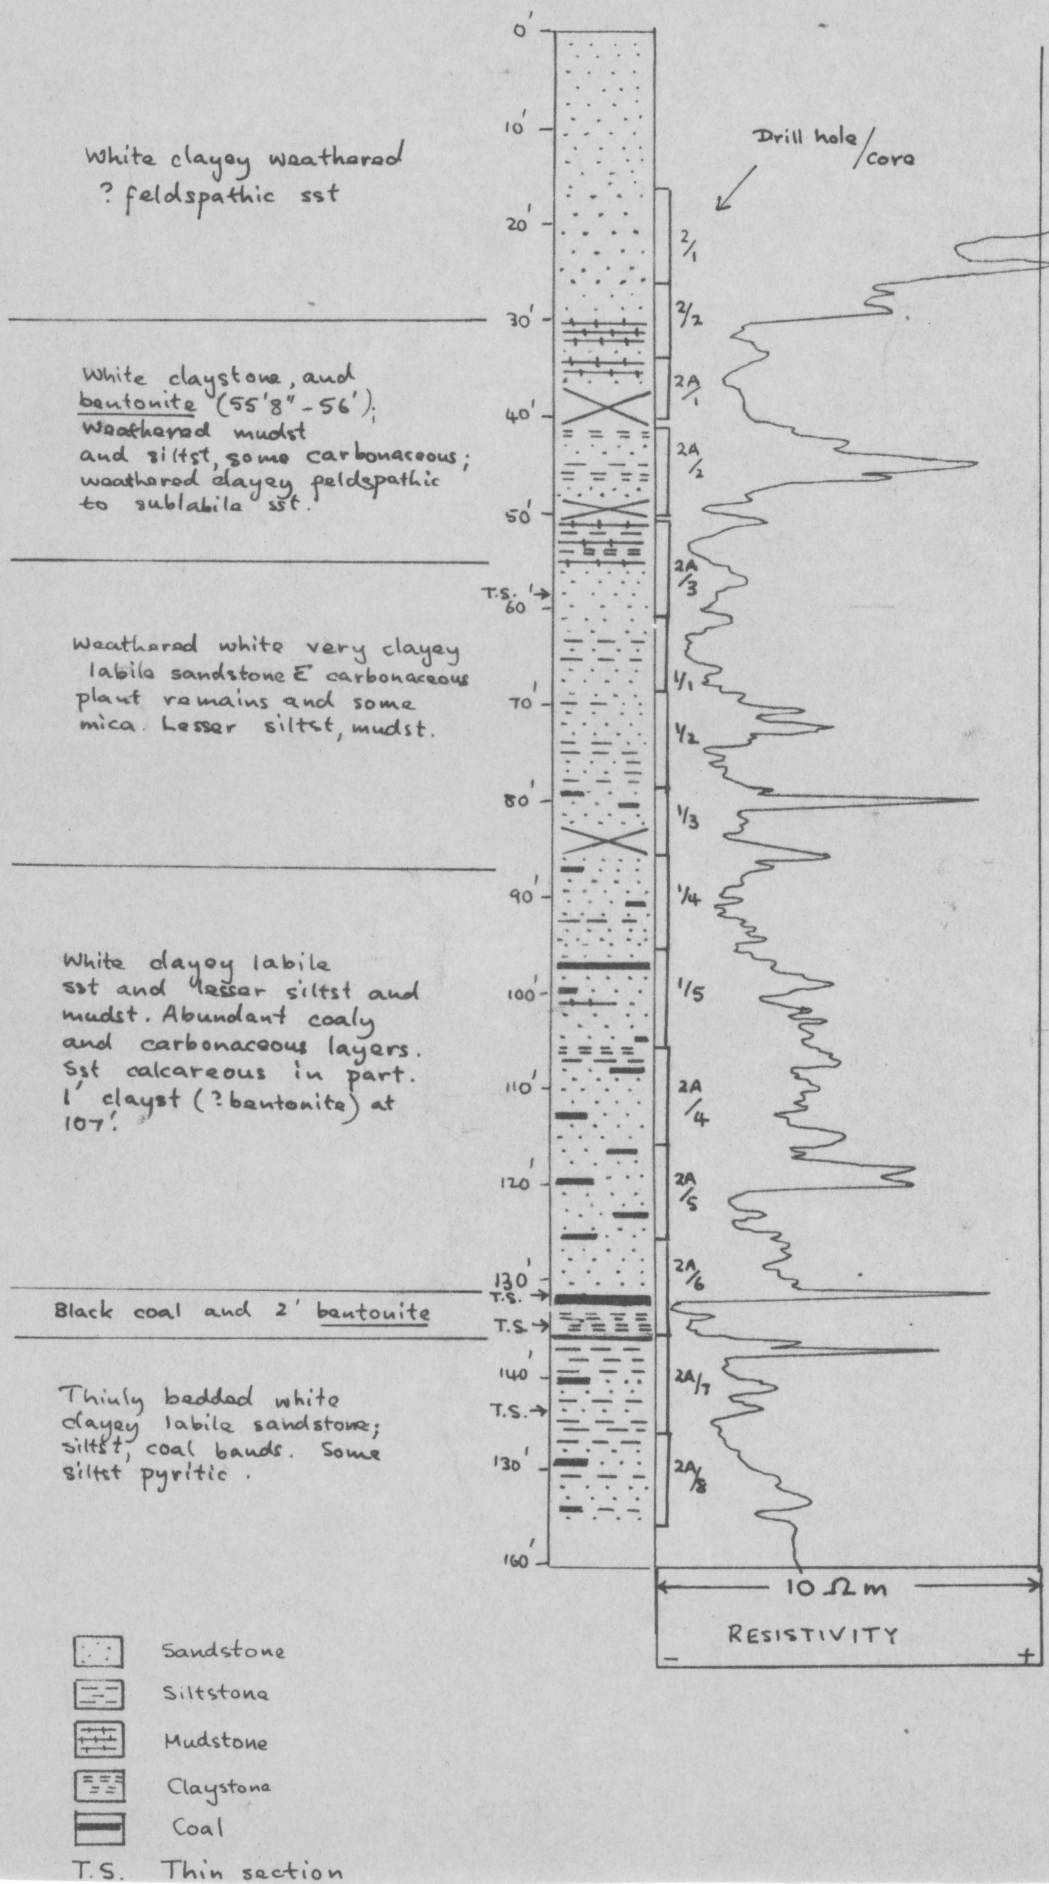 White clayey weathered
? feldspathic sst
White claystone, and
bentonite (55'8" - 56');
Weathered mudst
and siltst, some carbonaceous;
weathered clayey feldspathic
to sublabile sst.
Weathered white very clayey
labile sandstone c̄ carbonaceous
plant remains and some
mica. Lesser siltst, mudst.
White clayey labile
sst and lesser siltst and
mudst. Abundant coaly
and carbonaceous layers.
Sst calcareous in part.
1' clayst (? bentonite) at
107'.
Black coal and 2' bentonite
Thinly bedded white
clayey labile sandstone;
siltst, coal bands. Some
siltst pyritic.
0'
10'
20'
30'
40'
50'
T.S.
60'
70'
80'
90'
100'
110'
120'
130'
T.S.
T.S.
140'
T.S.
130'
160'
Drill hole/
core
2/1
2/2
2A/1
2A/2
2A/3
1/1
1/2
1/3
1/4
1/5
2A/4
2A/5
2A/6
2A/7
2A/8
10 Ω m
RESISTIVITY
- +
Sandstone
Siltstone
Mudstone
Claystone
Coal
T.S. Thin section